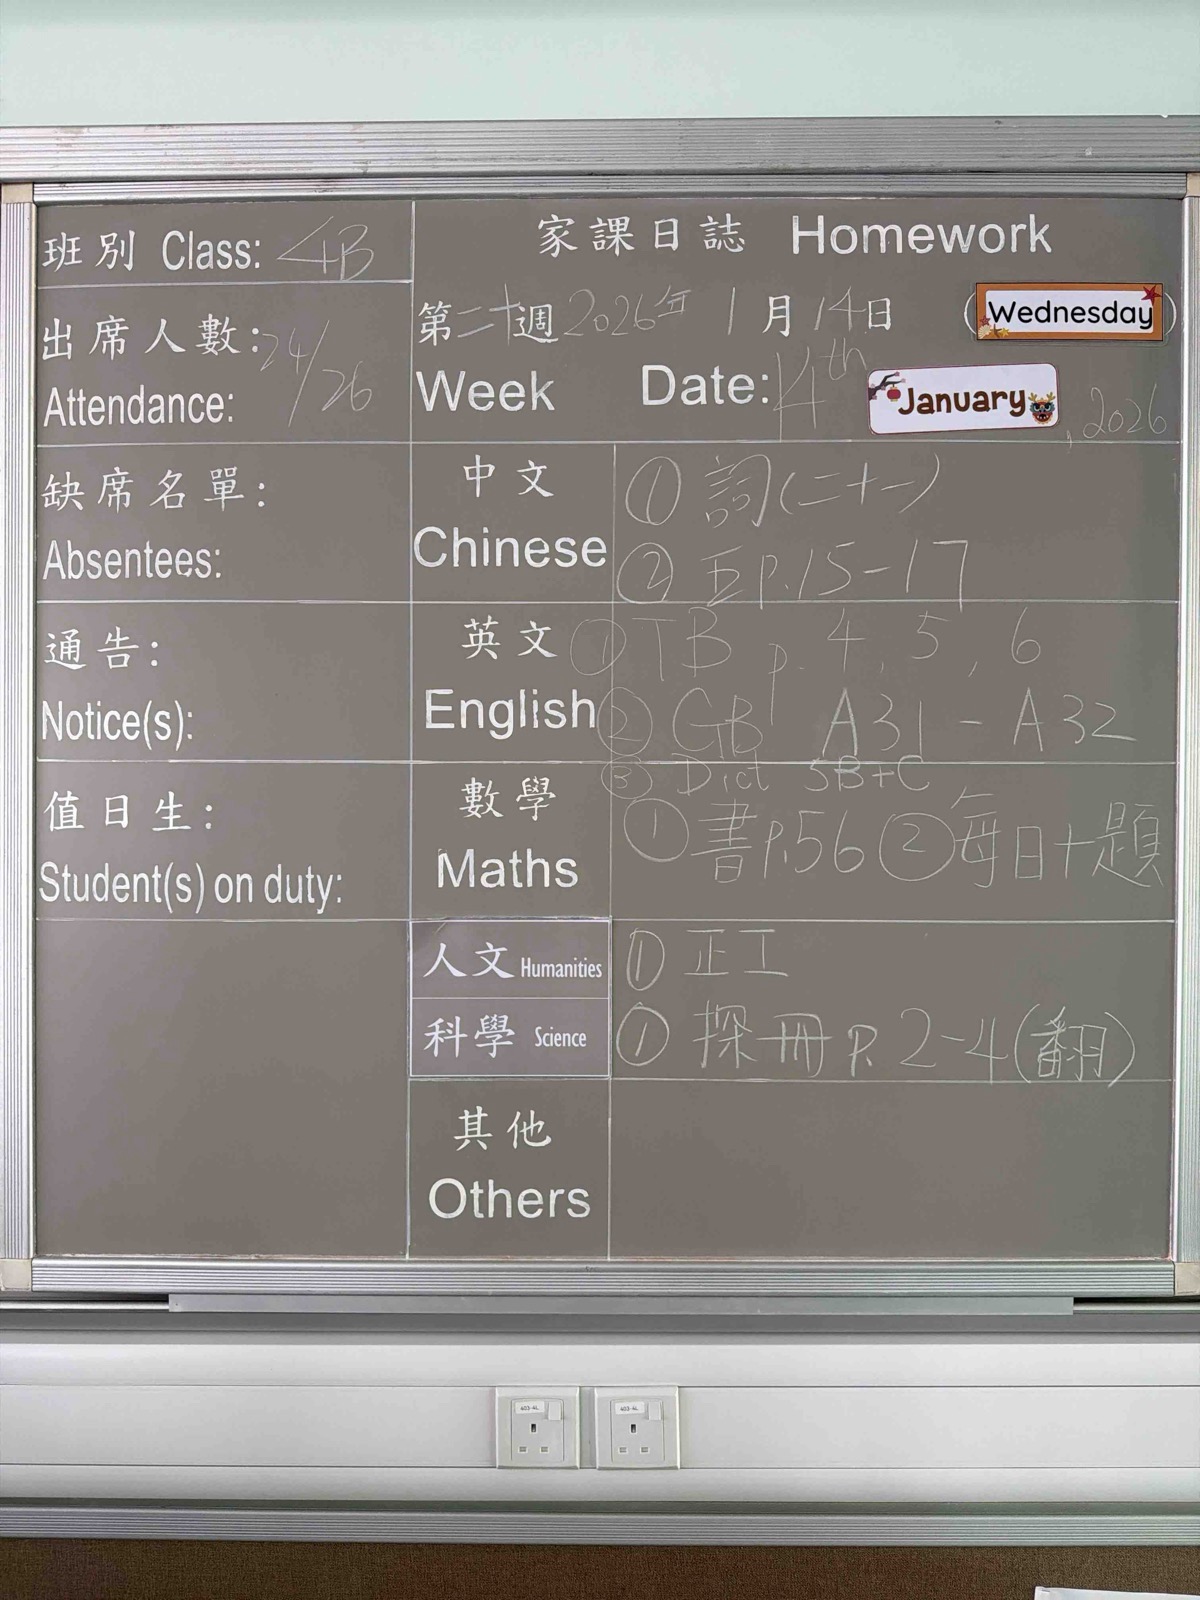 班別 Class: 4B
出席人數: 24/26
Attendance:
缺席名單:
Absentees:
通告:
Notice(s):
值日生:
Student(s) on duty:
家課日誌 Homework
第二十週 2026年 1月14日 (Wednesday)
Week Date: 14th January, 2026
中文 Chinese
① 詞(二十一)
② P.15-17
英文 English
① TB p. 4, 5, 6
② GB A31 - A32
③ Dict 5B+C
數學 Maths
① 書P.56 ② 每日十題
人文 Humanities
① 正工
科學 Science
① 探冊 P. 2-4(翻)
其他
Others
403-4L
403-4L